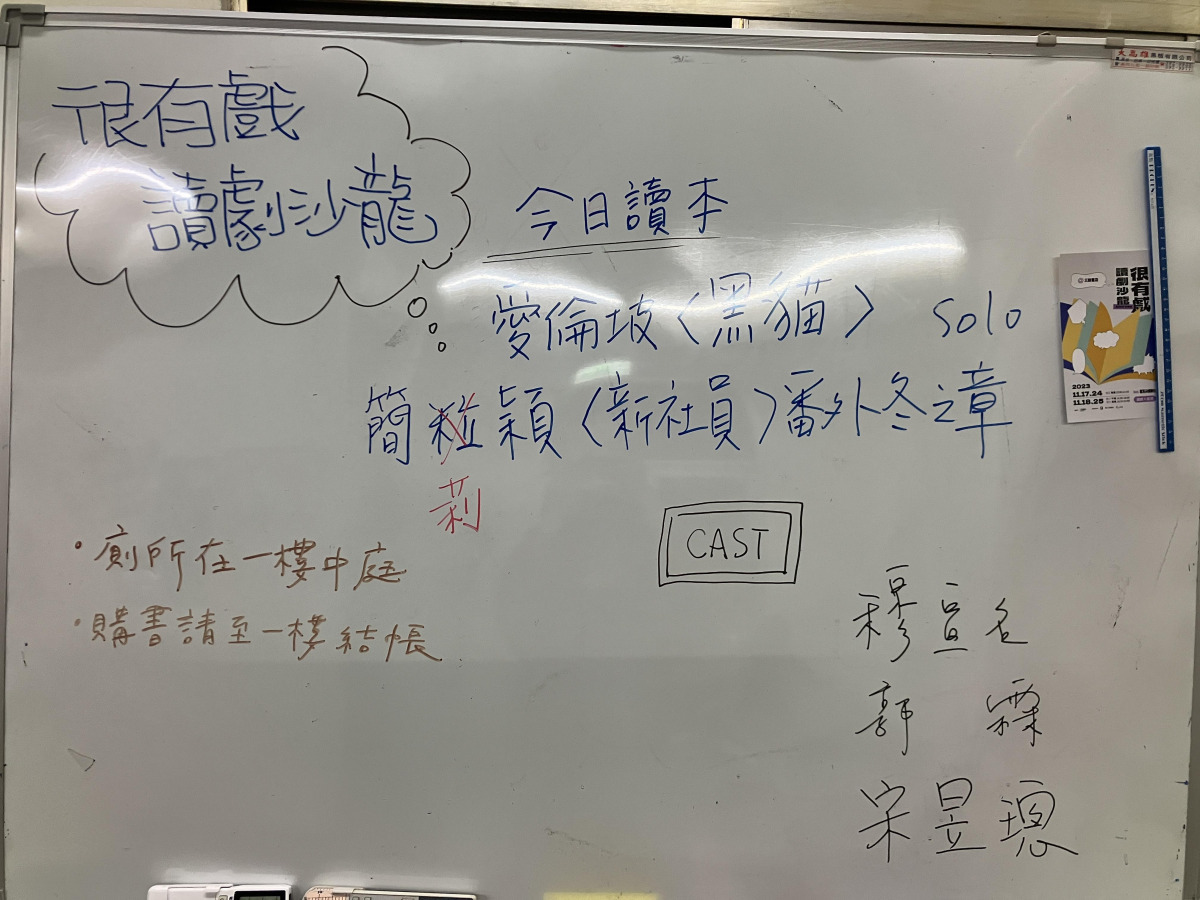 很有戲
讀劇沙龍
今日讀本
愛倫坡〈黑貓〉 solo
簡莉穎〈新社員〉番外冬之章
CAST
・廁所在一樓中庭
・購書請至一樓結帳
穆宣名
郭霖
宋昱璁
很有戲
讀劇沙龍
2023
11.17.24
11.18.25